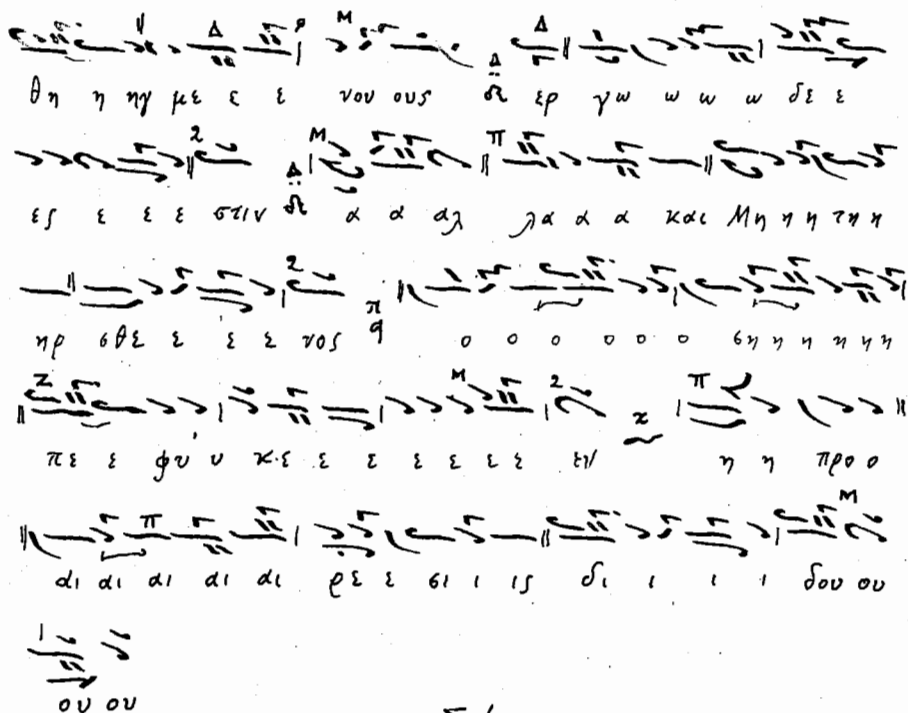 θη η ηγ με ε ε νου ους ερ γω ω ω ω δε ε
ες ε ε ε στιν α α αλ λα α α και Μη η η τη η
ηρ σθε ε ε ε νος ο ο ο ο ο ο ση η η η η η
πε ε φυ υ κε ε ε ε ε ε εν η η προ ο
αι αι αι αι αι ρε ε σι ι ις δι ι ι ι δου ου
ου ου